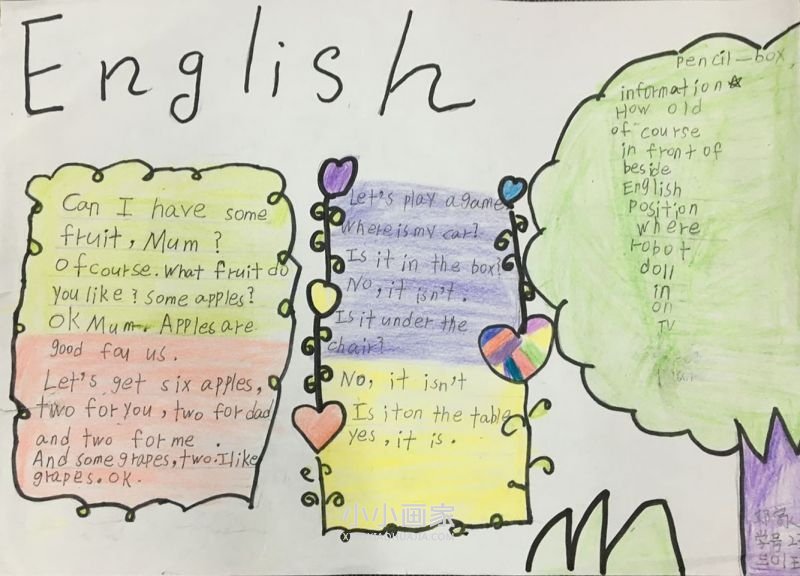 English
Can I have some
fruit, Mum ?
Of course. What fruit do
you like? Some apples?
OK Mum. Apples are
good fou us.
Let's get six apples,
two for you, two for dad
and two for me .
And some grapes, two. I like
grapes. OK.
Let's play a game
Where is my car?
Is it in the box?
No, it isn't.
Is it under the
chair?
No, it isn't
Is it on the table
yes, it is.
pencil-box,
information
How old
of course
in front of
beside
English
Position
where
robot
doll
in
on
TV
小小画家
学号